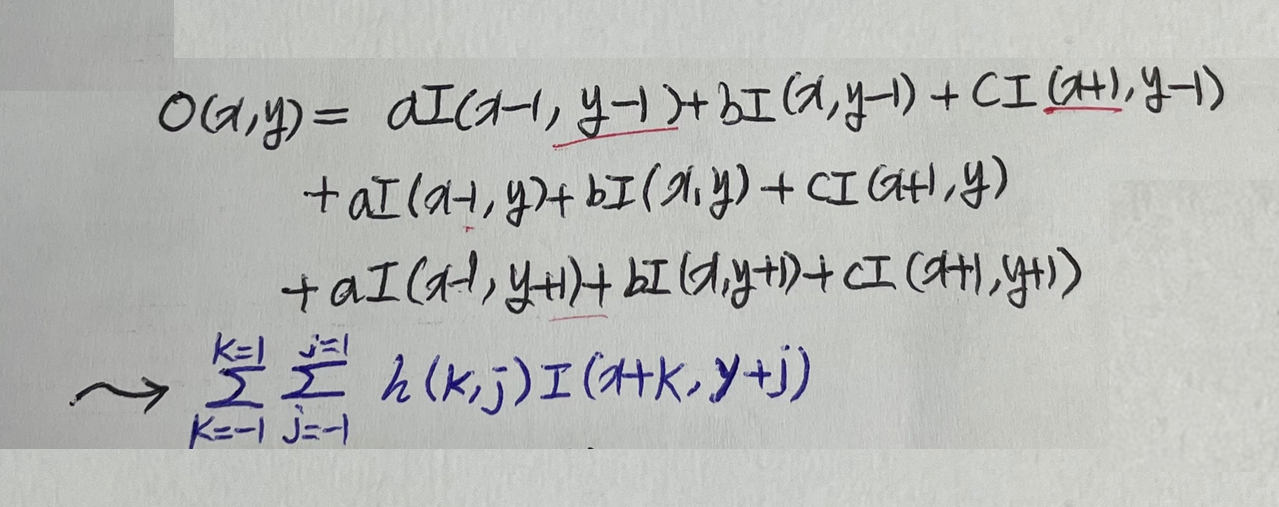 O(x,y) = aI(x-1, y-1) + bI(x,y-1) + CI(x+1, y-1)
+ aI(x-1, y) + bI(x,y) + CI(x+1, y)
+ aI(x-1, y+1) + bI(x,y+1) + CI(x+1, y+1)
⇝ ∑_{K=-1}^{K=1} ∑_{j=-1}^{j=1} h(K,j) I(x+K, y+j)